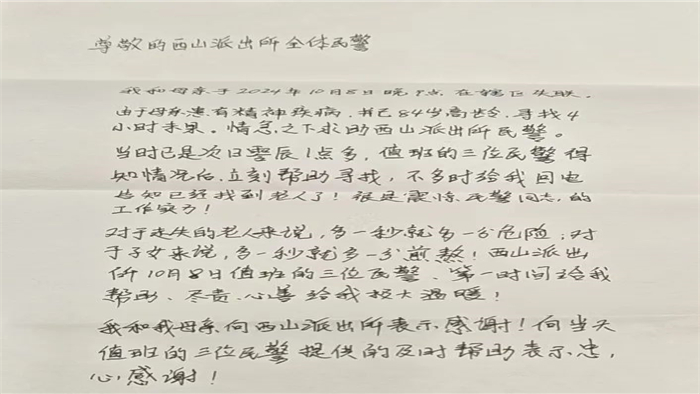 尊敬的西山派出所全体民警
我和母亲于2024年10月8日晚9点在辖区失联。
由于母亲患有精神疾病,并已84岁高龄,寻找4
小时未果。情急之下求助西山派出所民警。
当时已是次日零辰1点多,值班的三位民警得
知情况后立刻帮助寻找,不多时给我回电
告知已经找到老人了!很是震惊民警同志的
工作实力!
对于走失的老人来说,多一秒就多一分危险;对
于子女来说,多一秒就多一分煎熬!西山派出
所10月8日值班的三位民警、第一时间给我
帮助、尽责、心善给我极大温暖!
我和我母亲向西山派出所表示感谢!向当天
值班的三位民警提供的及时帮助表示忠,
心感谢!